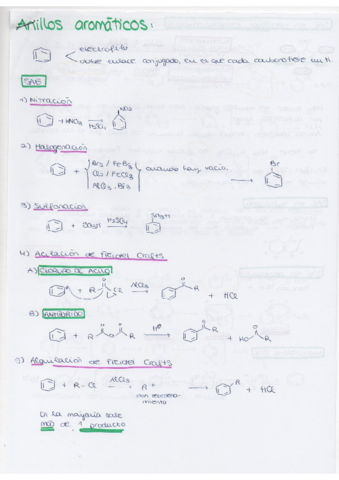 Anillos aromáticos:
electrófilo
tiene enlace conjugado, en el que cada carbono tiene un H.
SAE
1) Nitración
+ HNO3 H2SO4 NO2
2) Halogenación
Br2 / FeBr3
+ Cl2 / FeCl3 cuando hay vacío. Br
AlCl3, BF3
3) Sulfonación
+ SO3H H2SO4 SO3H
4) Acilación de Friedel Crafts
A) Cloruro de ácido
+ R O Cl AlCl3 O R + HCl
B) Anhídrido
+ R O O O R H⊕ O R + HO O R
5) Alquilación de Friedel Crafts
+ R - Cl AlCl3 R+ R + HCl
En la mayoría sale
más de 1 producto